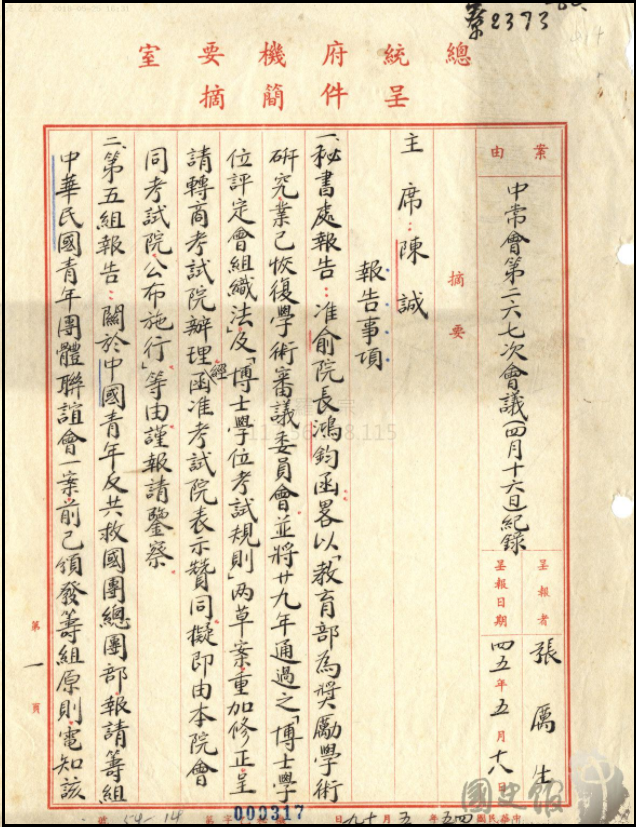 蔡2373
總統府機要室
呈件簡摘
案由
中常會第二六七次會議(四月十六日)紀錄
呈報者
張厲生
呈報日期
四五年五月十八日
摘要
主席：陳誠
報告事項
一、秘書處報告：准俞院長鴻鈞函畧以「教育部為獎勵學術
研究業已恢復學術審議委員會並將廿九年通過之「博士學
位評定會組織法」及「博士學位考試規則」兩草案重加修正呈
請轉商考試院辦理經函准考試院表示贊同擬即由本院會
同考試院公布施行」等由謹報請鑒察
二、第五組報告：關於中國青年反共救國團總團部報請籌組
中華民國青年團體聯誼會一案前已領發籌組原則電知該
第一頁
000317
國史館